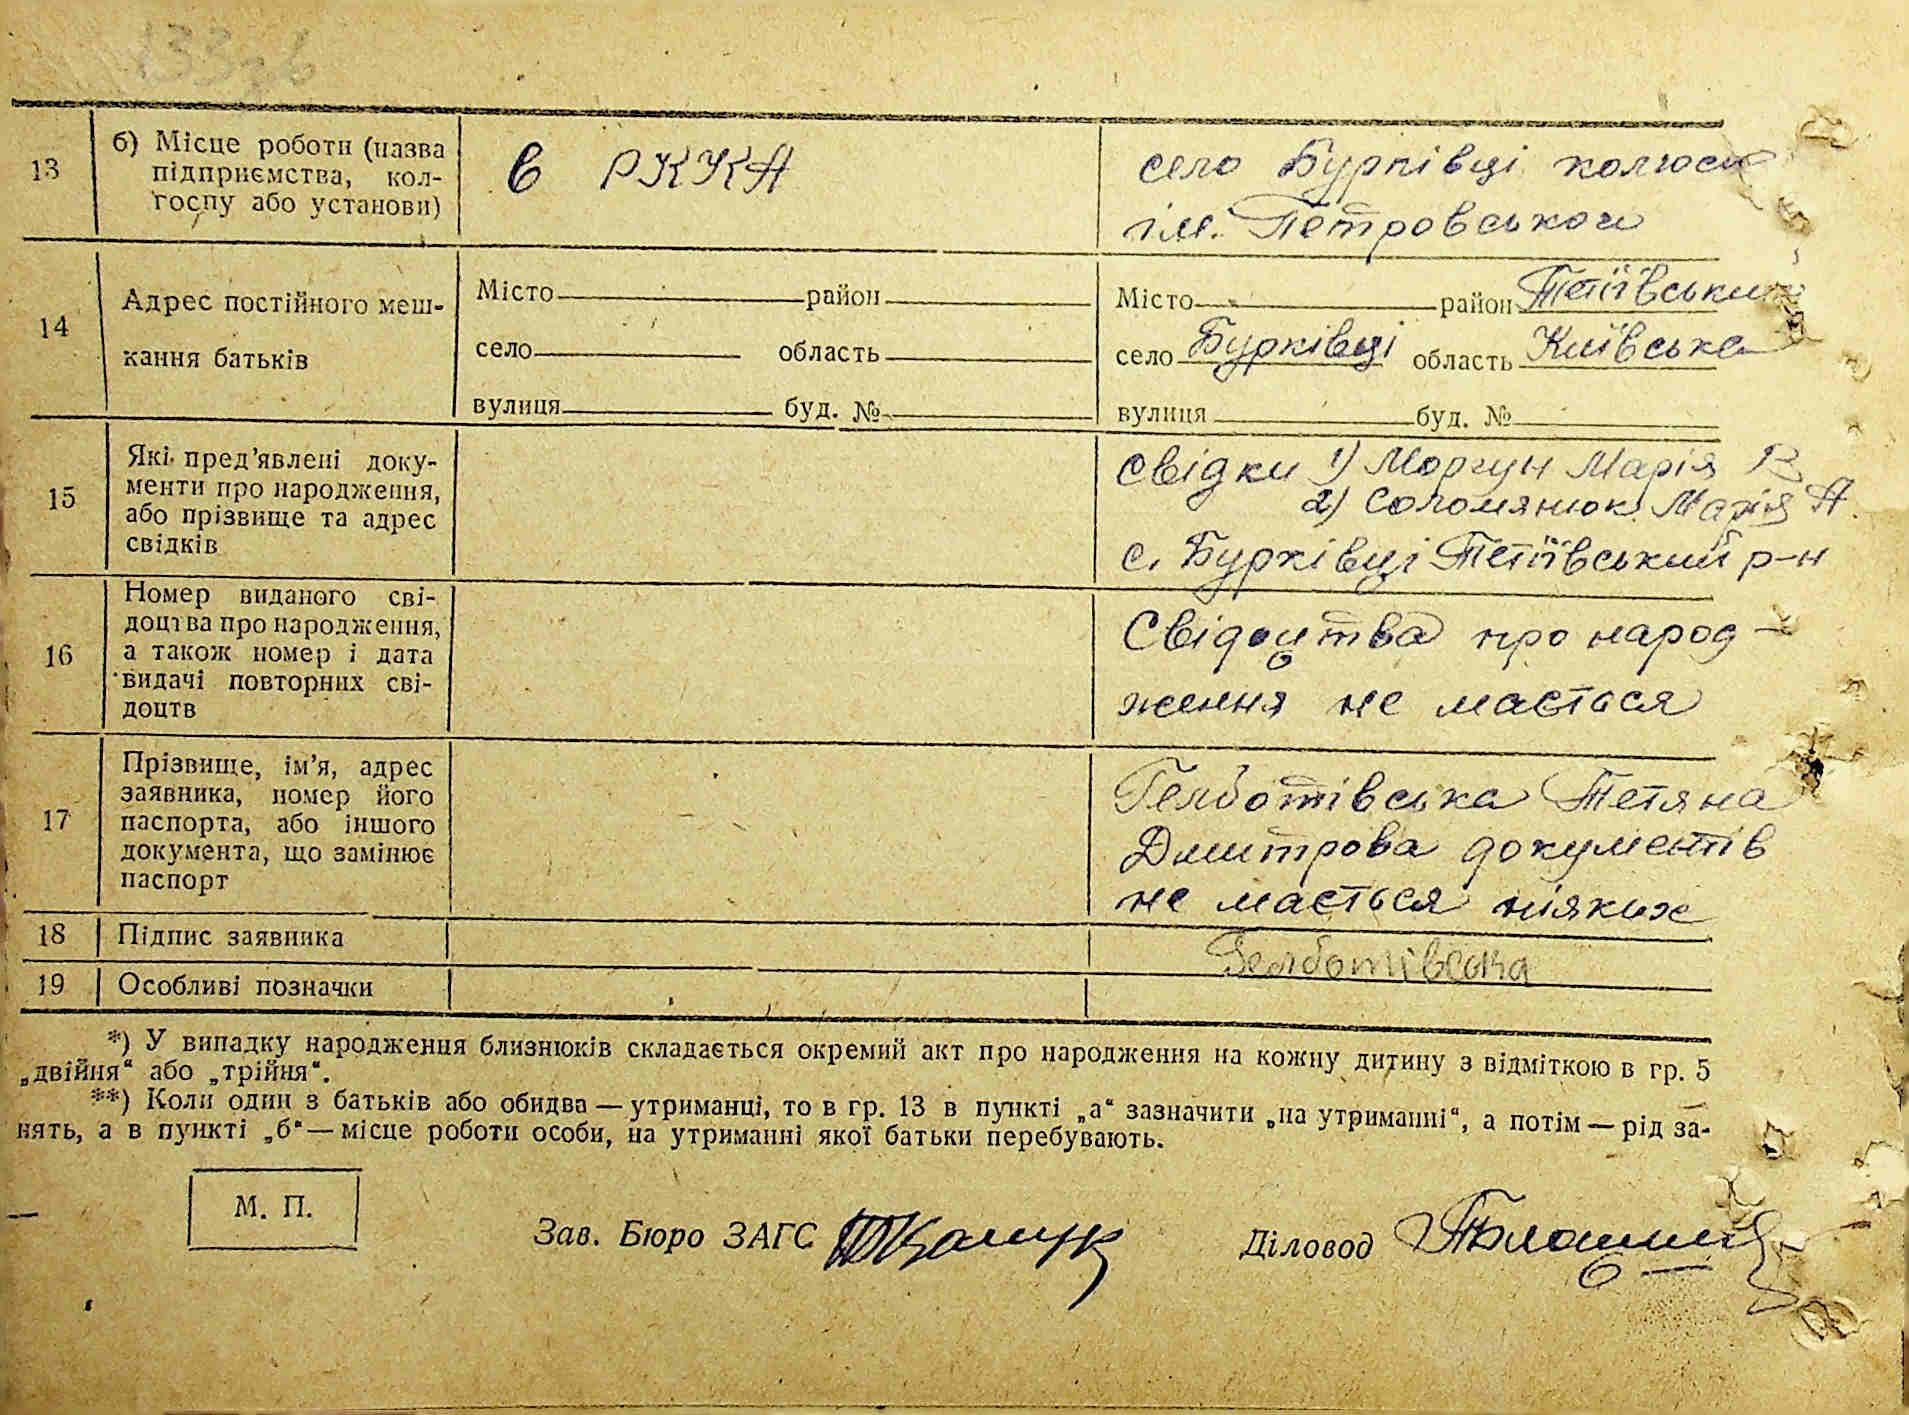 133зв
13 б) Місце роботи (назва підприємства, колгоспу або установи)
в РККА
село Бурківці колгосп
ім. Петровського
14 Адрес постійного мешкання батьків
Місто район
село область
вулиця буд. №
Місто район Тетіївський
село Бурківці область Київська
вулиця буд. №
15 Які пред’явлені документи про народження, або прізвище та адрес свідків
Свідки 1) Моргун Марія В
2) Соломянюк Марія А.
с. Бурківці Тетіївський р-н
16 Номер виданого свідоцтва про народження, а також номер і дата видачі повторних свідоцтв
Свідоцтва про народ-
ження не мається
17 Прізвище, ім’я, адрес заявника, номер його паспорта, або іншого документа, що замінює паспорт
Гелботівська Тетяна
Дмитрова документів
не мається ніяких
18 Підпис заявника
Гелботівська
19 Особливі позначки
*) У випадку народження близнюків складається окремий акт про народження на кожну дитину з відміткою в гр. 5
„двійня“ або „трійня“.
**) Коли один з батьків або обидва — утриманці, то в гр. 13 в пункті „а“ зазначити „на утриманні“, а потім — рід за-
нять, а в пункті „б“ — місце роботи особи, на утриманні якої батьки перебувають.
М. П.
Зав. Бюро ЗАГС
Діловод